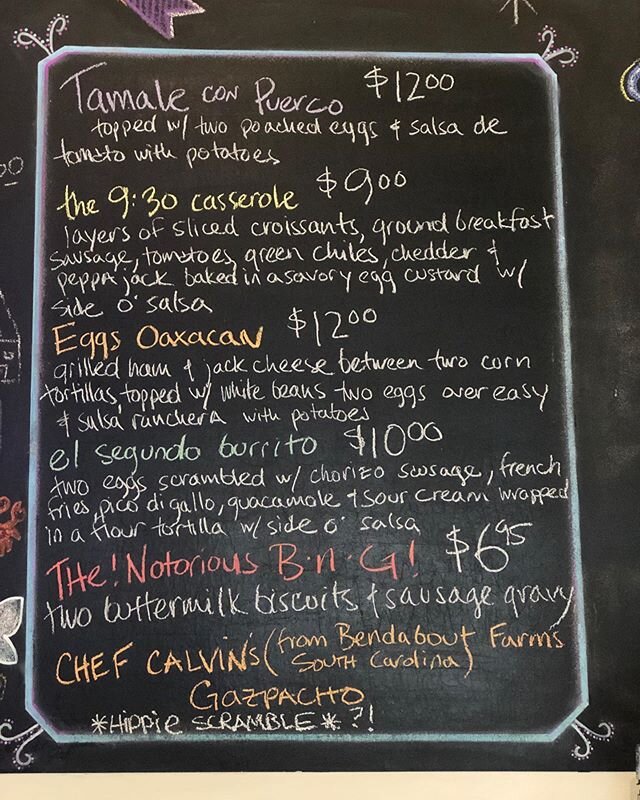 Tamale con Puerco $12.00
topped w/ two poached eggs & salsa de
tomato with potatoes
the 9:30 casserole $9.00
layers of sliced croissants, ground breakfast
sausage, tomatoes, green chiles, chedder &
peppa jack baked in a savory egg custard w/
side o' salsa
Eggs Oaxacan $12.00
grilled ham & jack cheese between two corn
tortillas, topped w/ white beans two eggs over easy
& salsa ranchera with potatoes
el segundo burrito $10.00
two eggs scrambled w/ chorizo sausage, french
fries, pico di gallo, guacamole & sour cream wrapped
in a flour tortilla w/ side o' salsa
THe! Notorious B·n·G! $6.95
two buttermilk biscuits & sausage gravy
CHEF CALVIN'S (from Bendabout Farms
South Carolina)
GAZPACHO
*HIPPIE SCRAMBLE* ?!